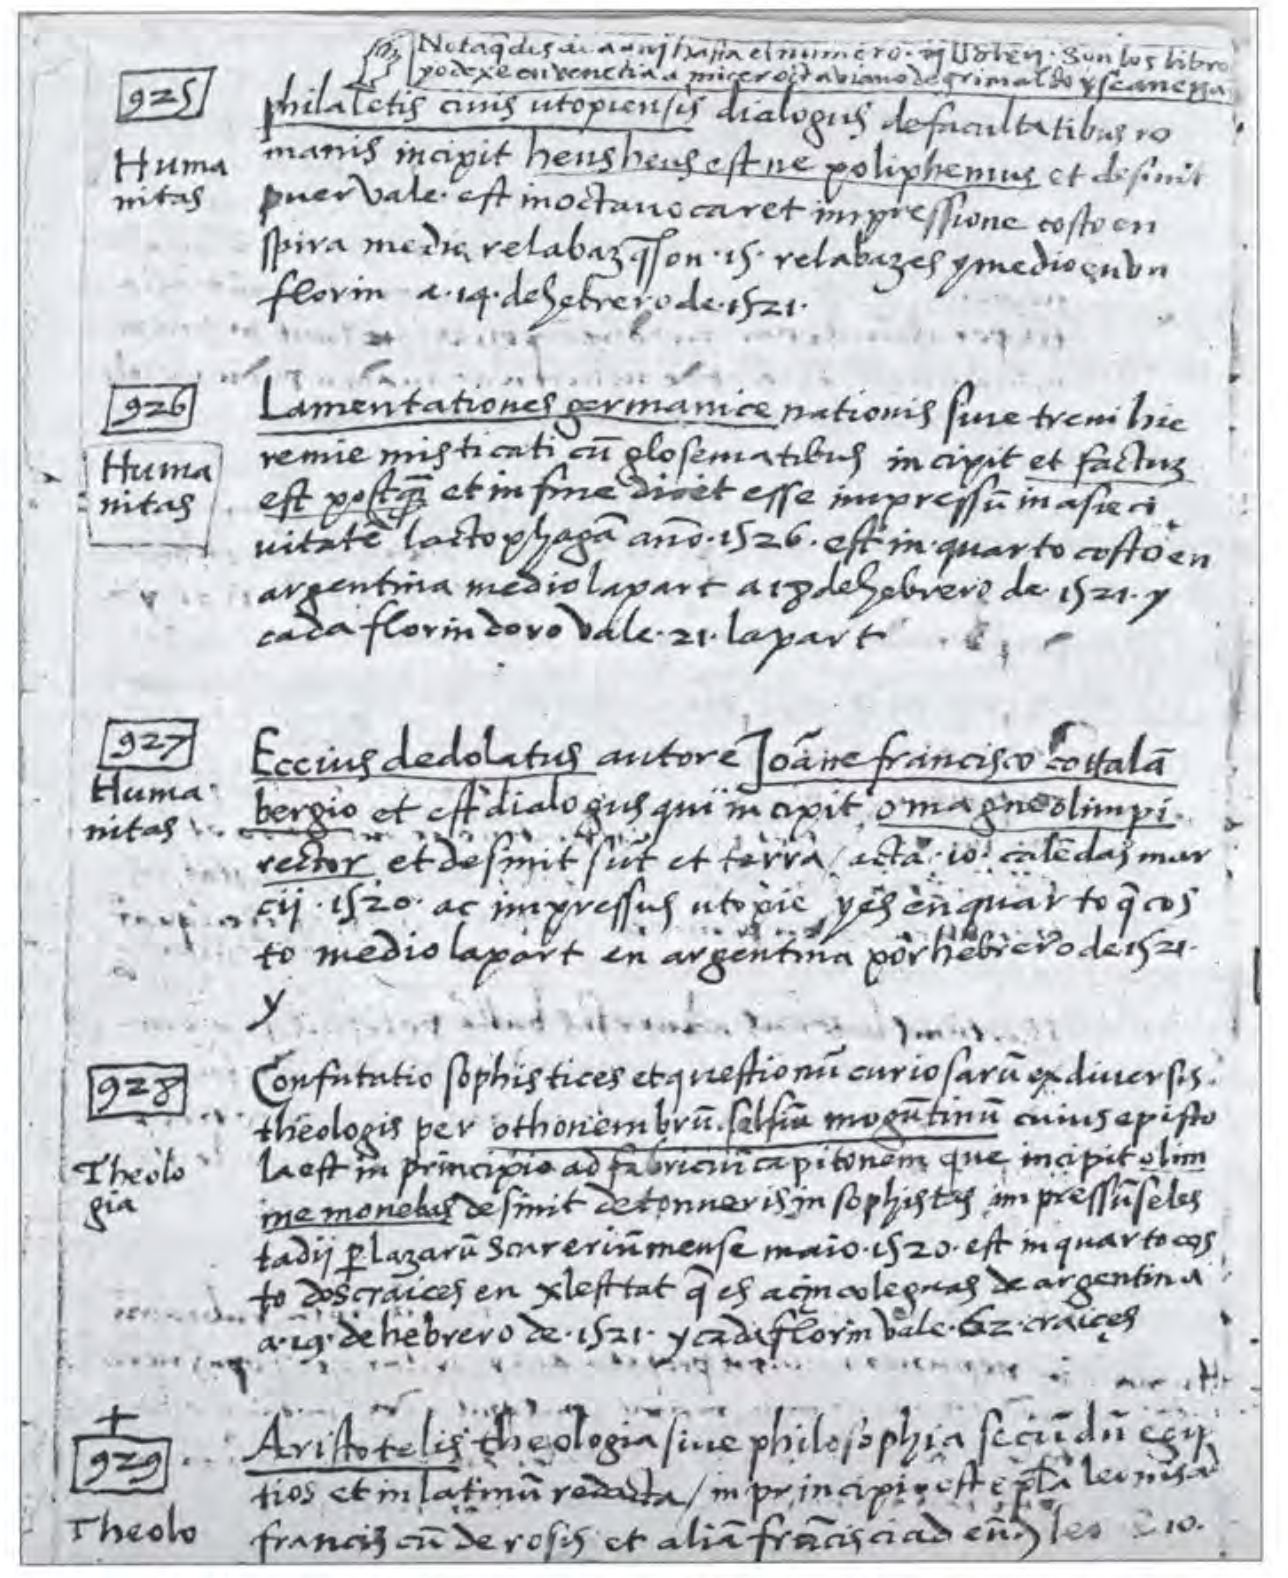 Nota q desde aqui hasta el numero Son los libros
yo dexe en venetia a micer octaviano de grimaldo y se anega
925
philaletis ciuis utopiensis dialogus de facultatibus ro
Huma
nitas
manis incipit heus heus est ne poliphemus et desinit
puer vale. est in octauo caret impressione costo en
spira medio relabaz q son .15. relabazes y medio en vn
florin a .14. de hebrero de .1521.
926
Lamentationes germanice nationis siue treni hie
Huma
nitas
remie misticati cū glosematibus incipit et factuz
est postq̄ et in fine dicit esse impressū in asie ci
uitatē lactophagā año .1526. est in quarto costo en
argentina medio lapart a 18 de hebrero de .1521. y
cada florin doro vale .21. lapart
927
Eccius dedolatus autore Joāne francisco cottalā
Huma
nitas
bergio et est dialogus qui incipit o magne olimpi
rector et desinit sūt et terra / acta .10. calēdas mar
cij .1520. ac impressus utopie y es en quarto q̄ cos
to medio lapart en argentina por hebrero de 1521.
y
928
Confutatio sophistices et questionū curiosarū ex diuersis
theologis per othonem brū.felsiū mogūtinū cuius episto
Theolo
gia
la est in principio ad fabriciū capitonem que incipit olim
me monebas desinit detonueris in sophistas impressū seles
tadij p lazarū Scurerium mense maio .1520. est in quarto cos
to dos craices en xlesttat q̄ es acinco leguas de argentina
a .19. de hebrero de .1521. y cada florin vale .62. craices
+
929
Aristotelis theologia siue philosophia secūdū egip
tios et in latinū redacta / in principio est epla
Theolo
francisci de rosis et alia frācisci ad eūd leo 10.